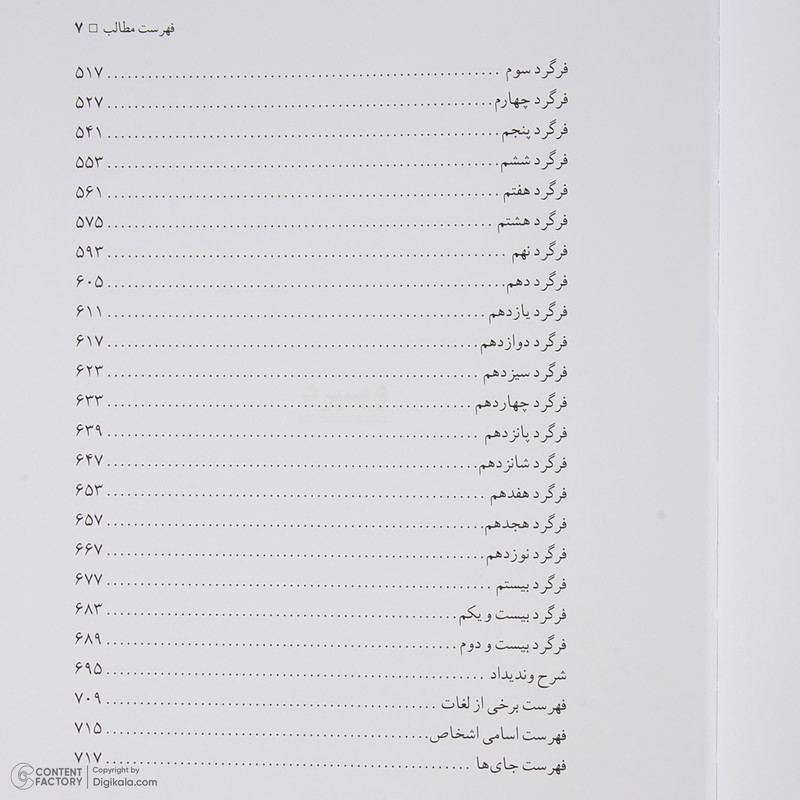 فهرست مطالب □ ۷
فرگرد سوم ........ ۵۱۷
فرگرد چهارم ........ ۵۲۷
فرگرد پنجم ........ ۵۴۱
فرگرد ششم ........ ۵۵۳
فرگرد هفتم ........ ۵۶۱
فرگرد هشتم ........ ۵۷۵
فرگرد نهم ........ ۵۹۳
فرگرد دهم ........ ۶۰۵
فرگرد یازدهم ........ ۶۱۱
فرگرد دوازدهم ........ ۶۱۷
فرگرد سیزدهم ........ ۶۲۳
فرگرد چهاردهم ........ ۶۳۳
فرگرد پانزدهم ........ ۶۳۹
فرگرد شانزدهم ........ ۶۴۷
فرگرد هفدهم ........ ۶۵۳
فرگرد هجدهم ........ ۶۵۷
فرگرد نوزدهم ........ ۶۶۷
فرگرد بیستم ........ ۶۷۷
فرگرد بیست و یکم ........ ۶۸۳
فرگرد بیست و دوم ........ ۶۸۹
شرح وندیداد ........ ۶۹۵
فهرست برخی از لغات ........ ۷۰۹
فهرست اسامی اشخاص ........ ۷۱۵
فهرست جای‌ها ........ ۷۱۷
CONTENT FACTORY
Copyright by
Digikala.com